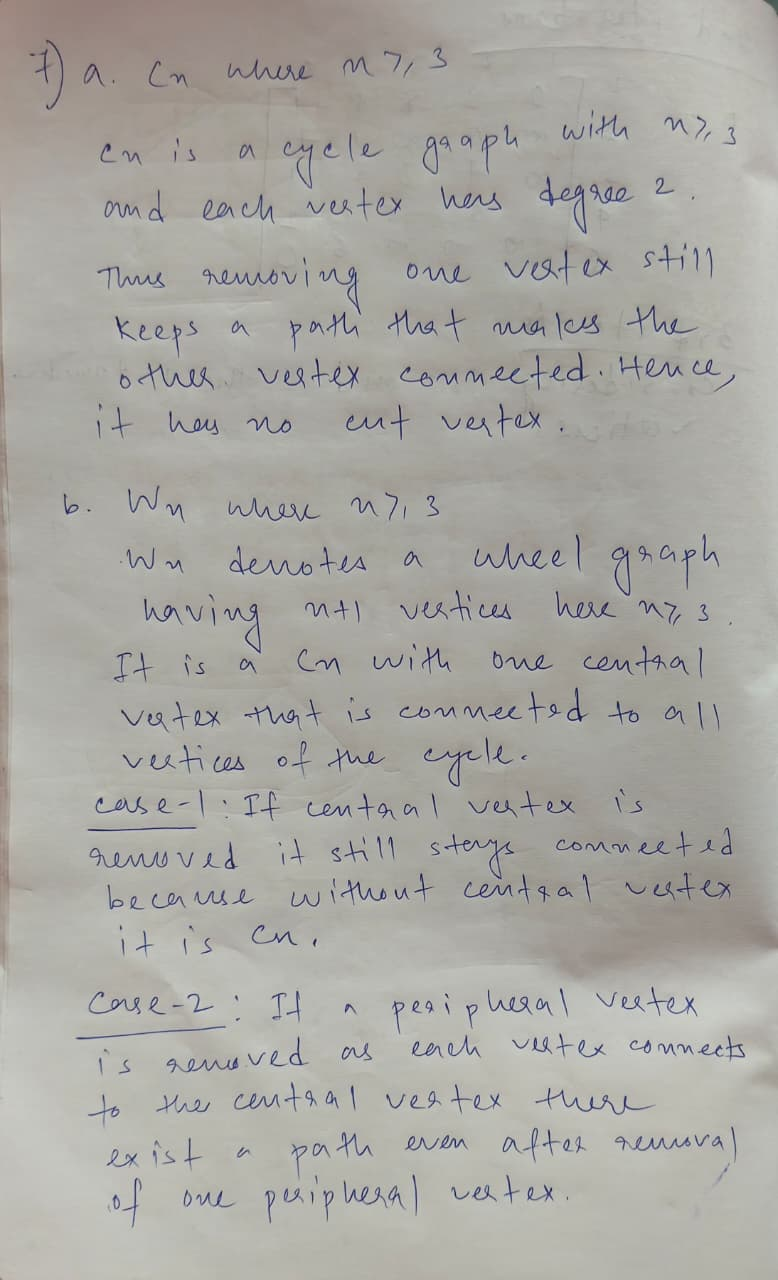 7) a. Cn where n ≥ 3
Cn is a cycle graph with n ≥ 3
and each vertex has degree 2.
Thus removing one vertex still
keeps a path that makes the
other vertex connected. Hence,
it has no cut vertex.
b. Wn where n ≥ 3
Wn denotes a wheel graph
having n+1 vertices here n ≥ 3.
It is a Cn with one central
vertex that is connected to all
vertices of the cycle.
case-1: If central vertex is
removed it still stays connected
because without central vertex
it is Cn.
Case-2: If a peripheral vertex
is removed as each vertex connects
to the central vertex there
exist a path even after removal
of one peripheral vertex.